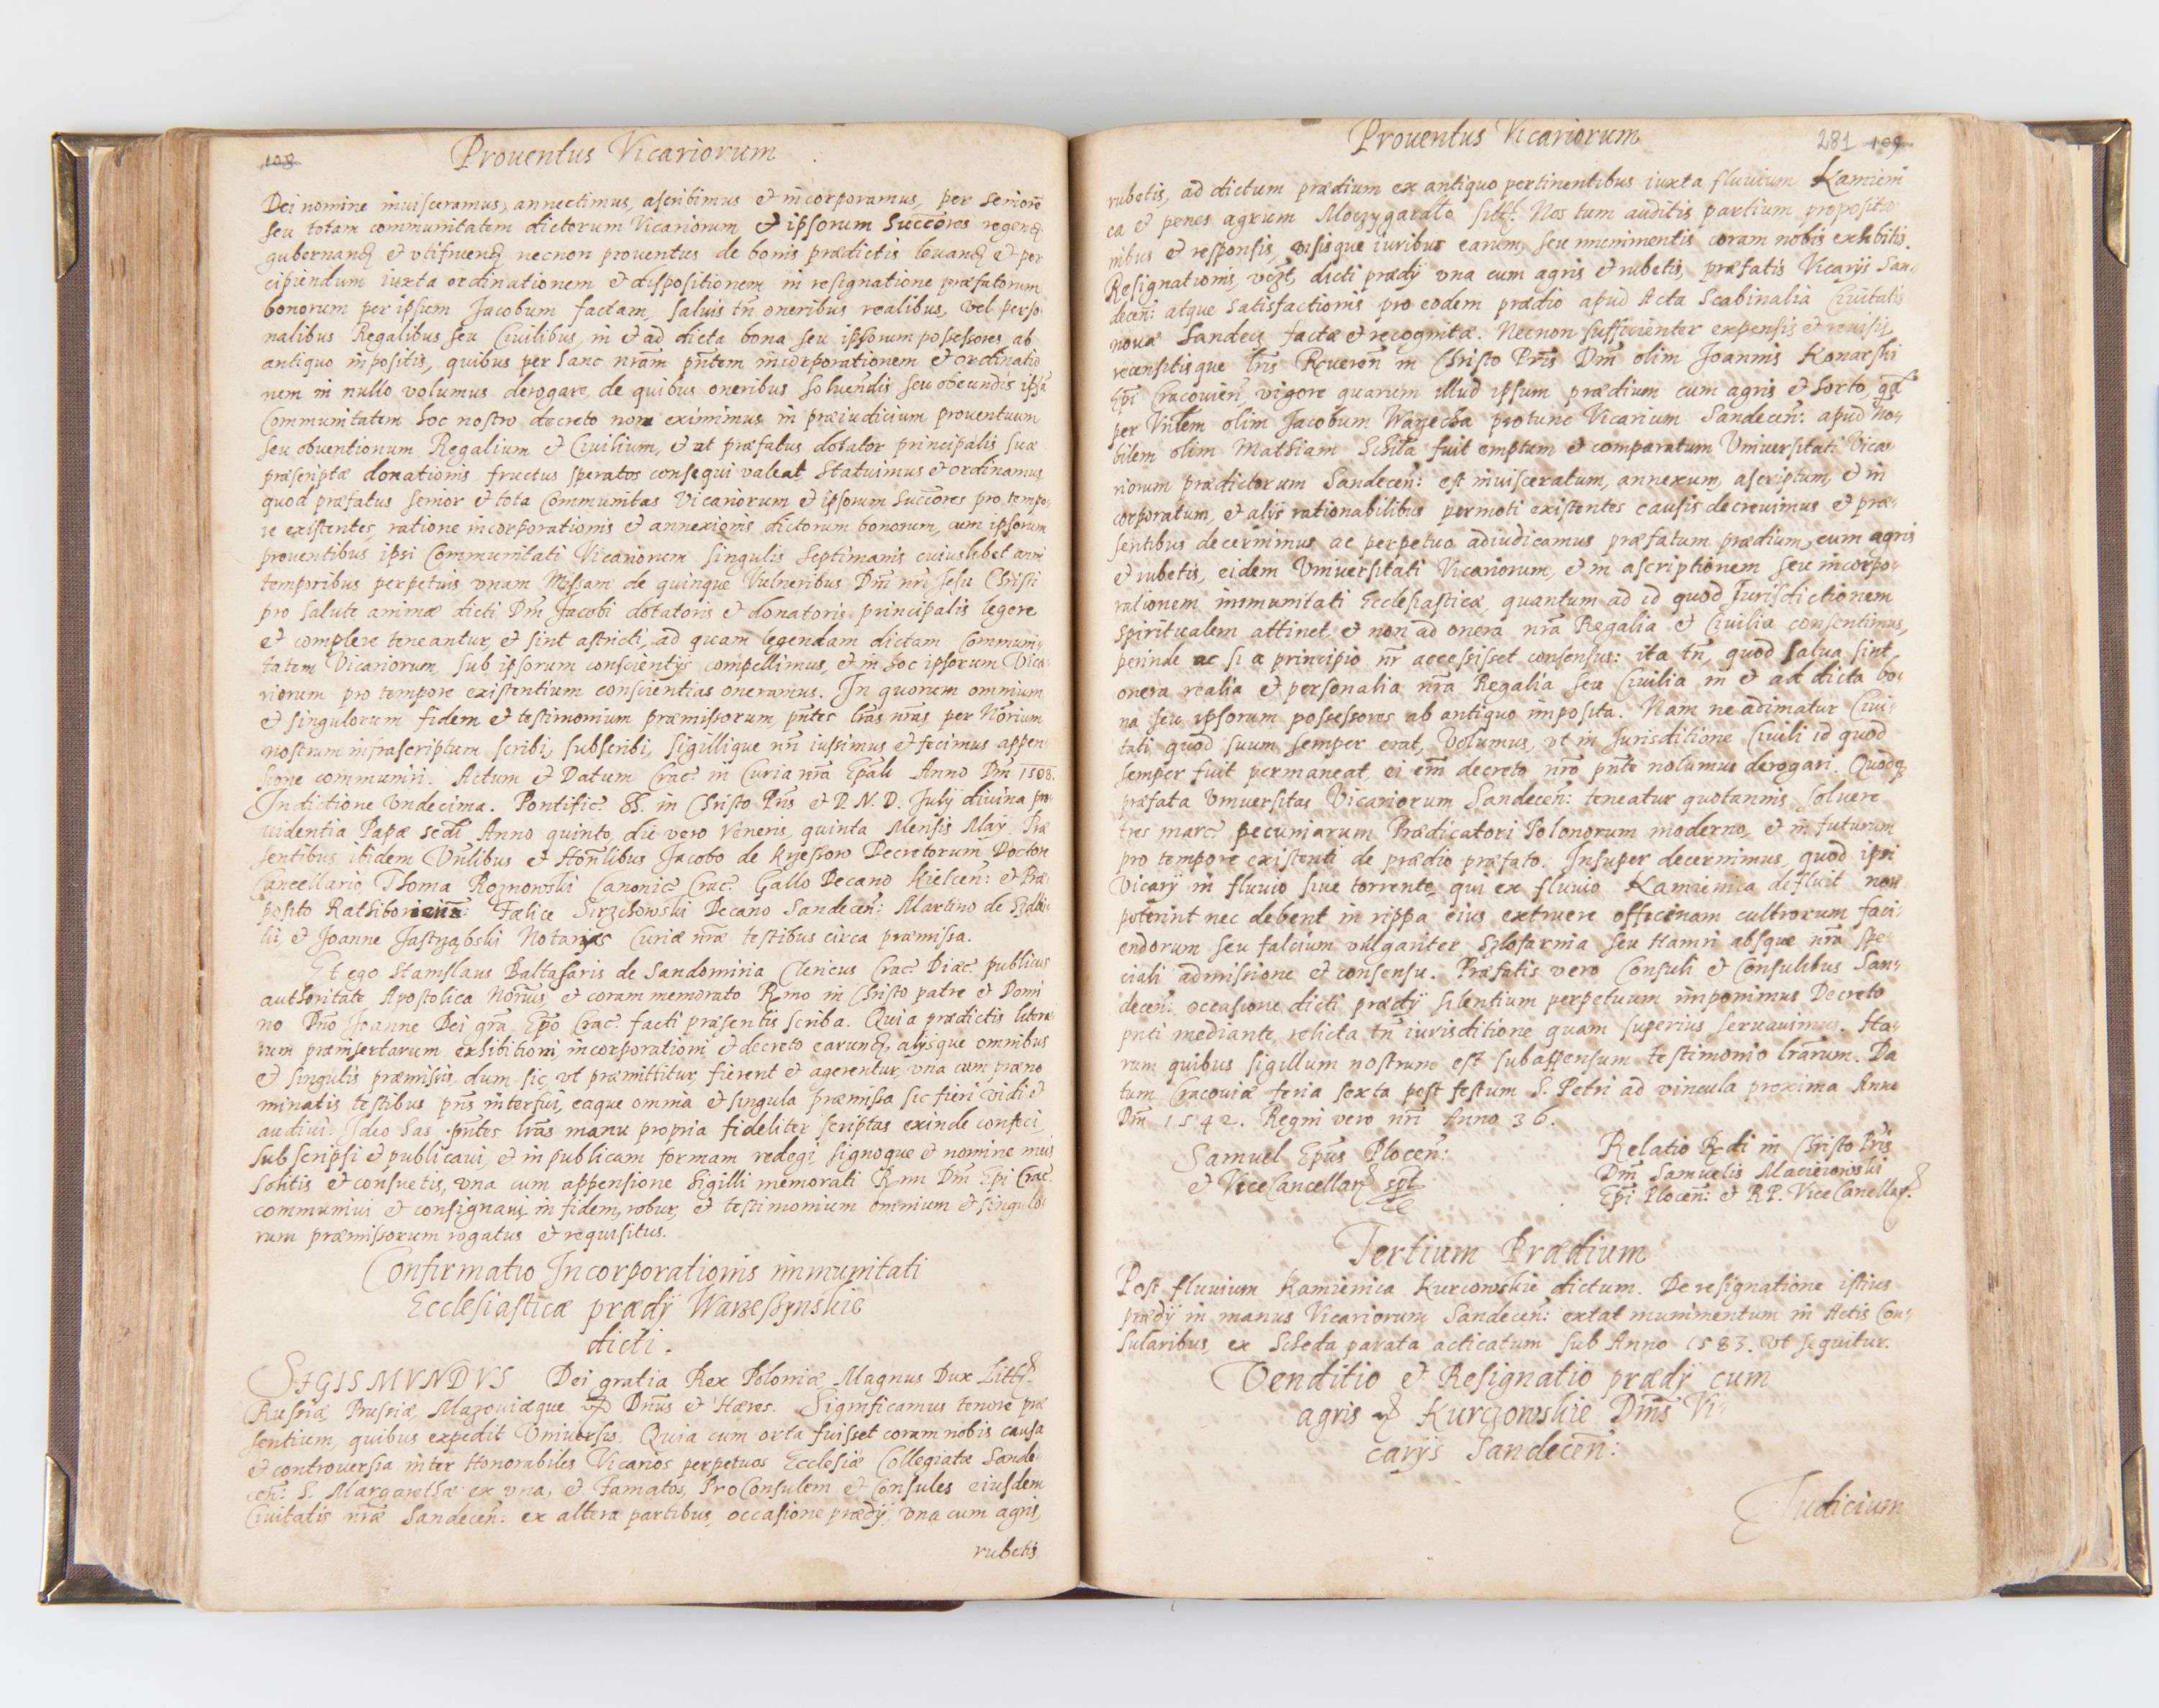 108
Prouentus Vicariorum
Dei nomine inuisceramus, annectimus, ascribimus et incorporamus, per Seniorē
seu totam communitatem dictorum Vicariorum et ipsorum Succōres regenđ
gubernanđ et vtifruenđ necnon prouentus de bonis prædictis leuanđ et per
cipiendum iuxta ordinationem et dispositionem in resignatione præfatorum
bonorum per ipsum Jacobum factam, saluis tn̄ oneribus realibus, vel perso
nalibus Regalibus seu Ciuilibus, in et ad dicta bona seu ipsorum possessores ab
antiquo impositis, quibus per hanc nrām pn̄tem incorporationem et ordinatio
nem in nullo volumus derogare, de quibus oneribus soluendis seu obeundis ipsā
Communitatem hoc nostro decreto non eximimus in præiudicium prouentuum
seu obuentionum Regalium et Ciuilium, et ut præfatus dotator principalis suæ
præscriptæ donationis fructus speratos consequi valeat Statuimus et ordinamus
quod præfatus senior et tota Communitas Vicariorum et ipsorum Succōres pro tempo,
re existentes, ratione incorporationis et annexionis dictorum bonorum, cum ipsorum
prouentibus ipsi Communitati Vicariorum singulis Septimanis cuiuslibet anni
temporibus perpetuis vnam Missam de quinque Vulneribus Dn̄i nr̄i Jesu Christi
pro salute animæ dicti Dn̄i Jacobi dotatoris et donatoris principalis legere
et complere teneantur, et sint astricti, ad quam legendam dictam Communi,
tatem Vicariorum, sub ipsorum conscientijs compellimus, et in hoc ipsorum Vica,
riorum pro tempore existentium conscientias oneramus. In quorum omnium
et singulorum fidem et testimonium præmissorum, pn̄tes lrās nrās per Nōrium
nostrum infrascriptum scribi, subscribi, sigillique nr̄i iussimus et fecimus appen
sione communiri. Actum et Datum Crac: in Curia nrā Ep̄ali Anno Dn̄i 1508.
Indictione vndecima. Pontific: SS. in Christo Pr̄is et D. N. D. Julij diuina pro
uidentia Papæ scdi Anno quinto, die vero Veneris, quinta Mensis Maij. Præ
sentibus ibidem Vn̄libus et Hōn̄libus Jacobo de Decretorum Doctore
Cancellario, Thoma Roznowski Canonic: Crac: Gallo Decano Kielcen̄: et Præ
posito Fælice Decano Sandecen̄: Martino de
et Joanne Jastrząbski Notarijs Curiæ nræ testibus circa præmissa.
Et ego Stanislaus Baltasaris de Sandomiria Clericus Crac: Diæc: publicus
authoritate Apostolica Nōrius, et coram memorato Rmo in Christo patre et Domi
no Dn̄o Joanne Dei grā Ep̄o Crac: facti præsentis scriba. Quia prædictis litera
rum præinsertarum exhibitioni, incorporationi et decreto earunđ, alijsque omnibus
et singulis præmissis dum sic, vt præmittitur, fierent et agerentur, vna cum præno
minatis testibus pn̄s interfui, eaque omnia et singula præmissa sic fieri vidi et
audiui. Ideo has pn̄tes lrās manu propria fideliter scriptas exinde confeci,
subscripsi et publicaui, et in publicam formam redegi, signoque et nomine meis
solitis et consuetis, vna cum appensione Sigilli memorati Rmi Dn̄i Ep̄i Crac:
communiui et consignaui, in fidem, robur, et testimonium omnium et singulo,
rum præmissorum rogatus et requisitus.
Confirmatio Incorporationis immunitati
Ecclesiasticæ prædij
dicti.
SIGISMVNDVS Dei gratia Rex Poloniæ Magnus Dux Litt:
Russiæ Prussiæ Mazouiæque Dn̄us et Hæres. Significamus tenore præ
sentium, quibus expedit Vniuersis. Quia cum orta fuisset coram nobis causa
et controuersia inter Honorabiles Vicarios perpetuos Ecclesiæ Collegiatæ Sande,
cen̄: S. Margarethæ ex vna, et Famatos, ProConsulem et Consules eiusdem
Ciuitatis nræ Sandecen̄: ex altera partibus, occasione prædij, vna cum agris,
rubetis
Prouentus Vicariorum
281 109
rubetis, ad dictum prædium ex antiquo pertinentibus iuxta fluuium Kamieni
ca et penes agrum sitis. Nos tum auditis partium propositio
nibus et responsis, visisque iuribus earum, seu munimentis coram nobis exhibitis.
Resignationis, vczt, dicti prædij vna cum agris et rubetis, præfatis Vicarijs San,
decen̄: atque satisfactionis pro eodem prædio apud Acta Scabinalia Ciuitatis
nouæ Sandecz factæ et recognitæ. Necnon sufficienter expensis et reuisis,
recensitisque lrīs Reueren̄ in Christo Pr̄is Dn̄i olim Joannis Konarski
Ep̄i Cracouien̄, vigore quarum illud ipsum prædium cum agris et horto, qđ
per Vn̄lem olim Jacobum protunc Vicarium Sandecen̄: apud No,
bilem olim Mathiam fuit emptum et comparatum Vniuersitati Vica
riorum prædictorum Sandecen̄: est inuisceratum, annexum, ascriptum, et in
corporatum, et alijs rationabilibus permoti existentes causis decreuimus et præ,
sentibus decernimus ac perpetuo adiudicamus præfatum prædium, cum agris
et rubetis, eidem Vniuersitati Vicariorum, et in ascriptionem seu incorpo,
rationem immunitati Ecclesiasticæ, quantum ad id quod Jurisdictionem
spiritualem attinet, et non ad onera nrā Regalia et Ciuilia consentimus,
perinde ac si a principio nr̄ accessisset consensus: ita tn̄, quod salua sint
onera realia et personalia nrā Regalia seu Ciuilia in et ad dicta bo,
na seu ipsorum possessores ab antiquo imposita. Nam ne adimatur Ciui,
tati, quod suum semper erat, Volumus, vt in Jurisditione Ciuili id quod
semper fuit permaneat, ei em̄ decreto nrō pn̄te nolumus derogari. Quodq;
præfata Vniuersitas Vicariorum Sandecen̄: teneatur quotannis soluere
tres marc: pecuniarum Prædicatori Polonorum moderno, et in futurum
pro tempore existenti de prædio præfato. Insuper decernimus, quod ipsi
Vicarij in fluuio siue torrente, qui ex fluuio Kamienica defluit non
poterint nec debent in rippa eius extruere officinam cultrorum faci,
endorum seu falcium vulgariter Szlosarnia seu Hamri absque nrā spe
ciali admissione et consensu. Præfatis vero Consuli et Consulibus San,
decen̄: occasione dicti prædij silentium perpetuum imponimus Decreto
pn̄ti mediante, relicta tn̄ iurisditione quam superius seruauimus. Ha,
rum quibus sigillum nostrum est subappensum testimonio lrārum. Da
tum Cracouiæ feria sexta post festum S. Petri ad vincula proxima Anno
Dn̄i 1542. Regni vero nr̄i Anno 36.
Samuel Ep̄us Plocen̄:
et ViceCancellar: spt
Relatio Rdi in Christo Pr̄is
Dn̄i Samuelis Macieiowski
Ep̄i Plocen̄: et R.P. ViceCancellar.
Tertium Prædium
Post fluuium Kamienica Kurcowskie dictum. De resignatione istius
prædij in manus Vicariorum Sandecen̄: extat munimentum in Actis Con,
sularibus, ex Scheda parata acticatum sub Anno 1583. vt sequitur.
Venditio et Resignatio prædij cum
agris Kurczowskie Dn̄is Vi,
carijs Sandecen̄:
Judicium